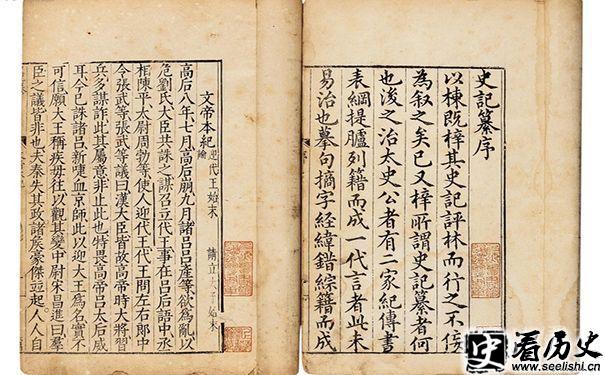 史記纂序
以棟既梓其史記評林而行之不佞
為叙之矣已又梓所謂史記纂者何
也後之治太史公者有二家紀傳書
表綱提臚列籍而成一代言者此未
易治也摹句摘字經緯錯綜籍而成
文帝本紀 迎代王始末 請立太子始末
高后八年七月高后崩九月諸呂呂產等欲為亂以
危劉氏大臣共誅之謀召立代王事在呂后語中丞
相陳平太尉周勃等使人迎代王代王問左右郎中
令張武等張武等議曰漢大臣皆故高帝時大將習
兵多謀詐此其屬意非止此也特畏高帝呂太后威
耳今已誅諸呂新啑血京師此以迎大王為名實不
可信願大王稱疾毋往以觀其變中尉宋昌進曰羣
臣之議皆非也夫秦失其政諸侯豪傑竝起人人自
看历史
www.seelishi.com